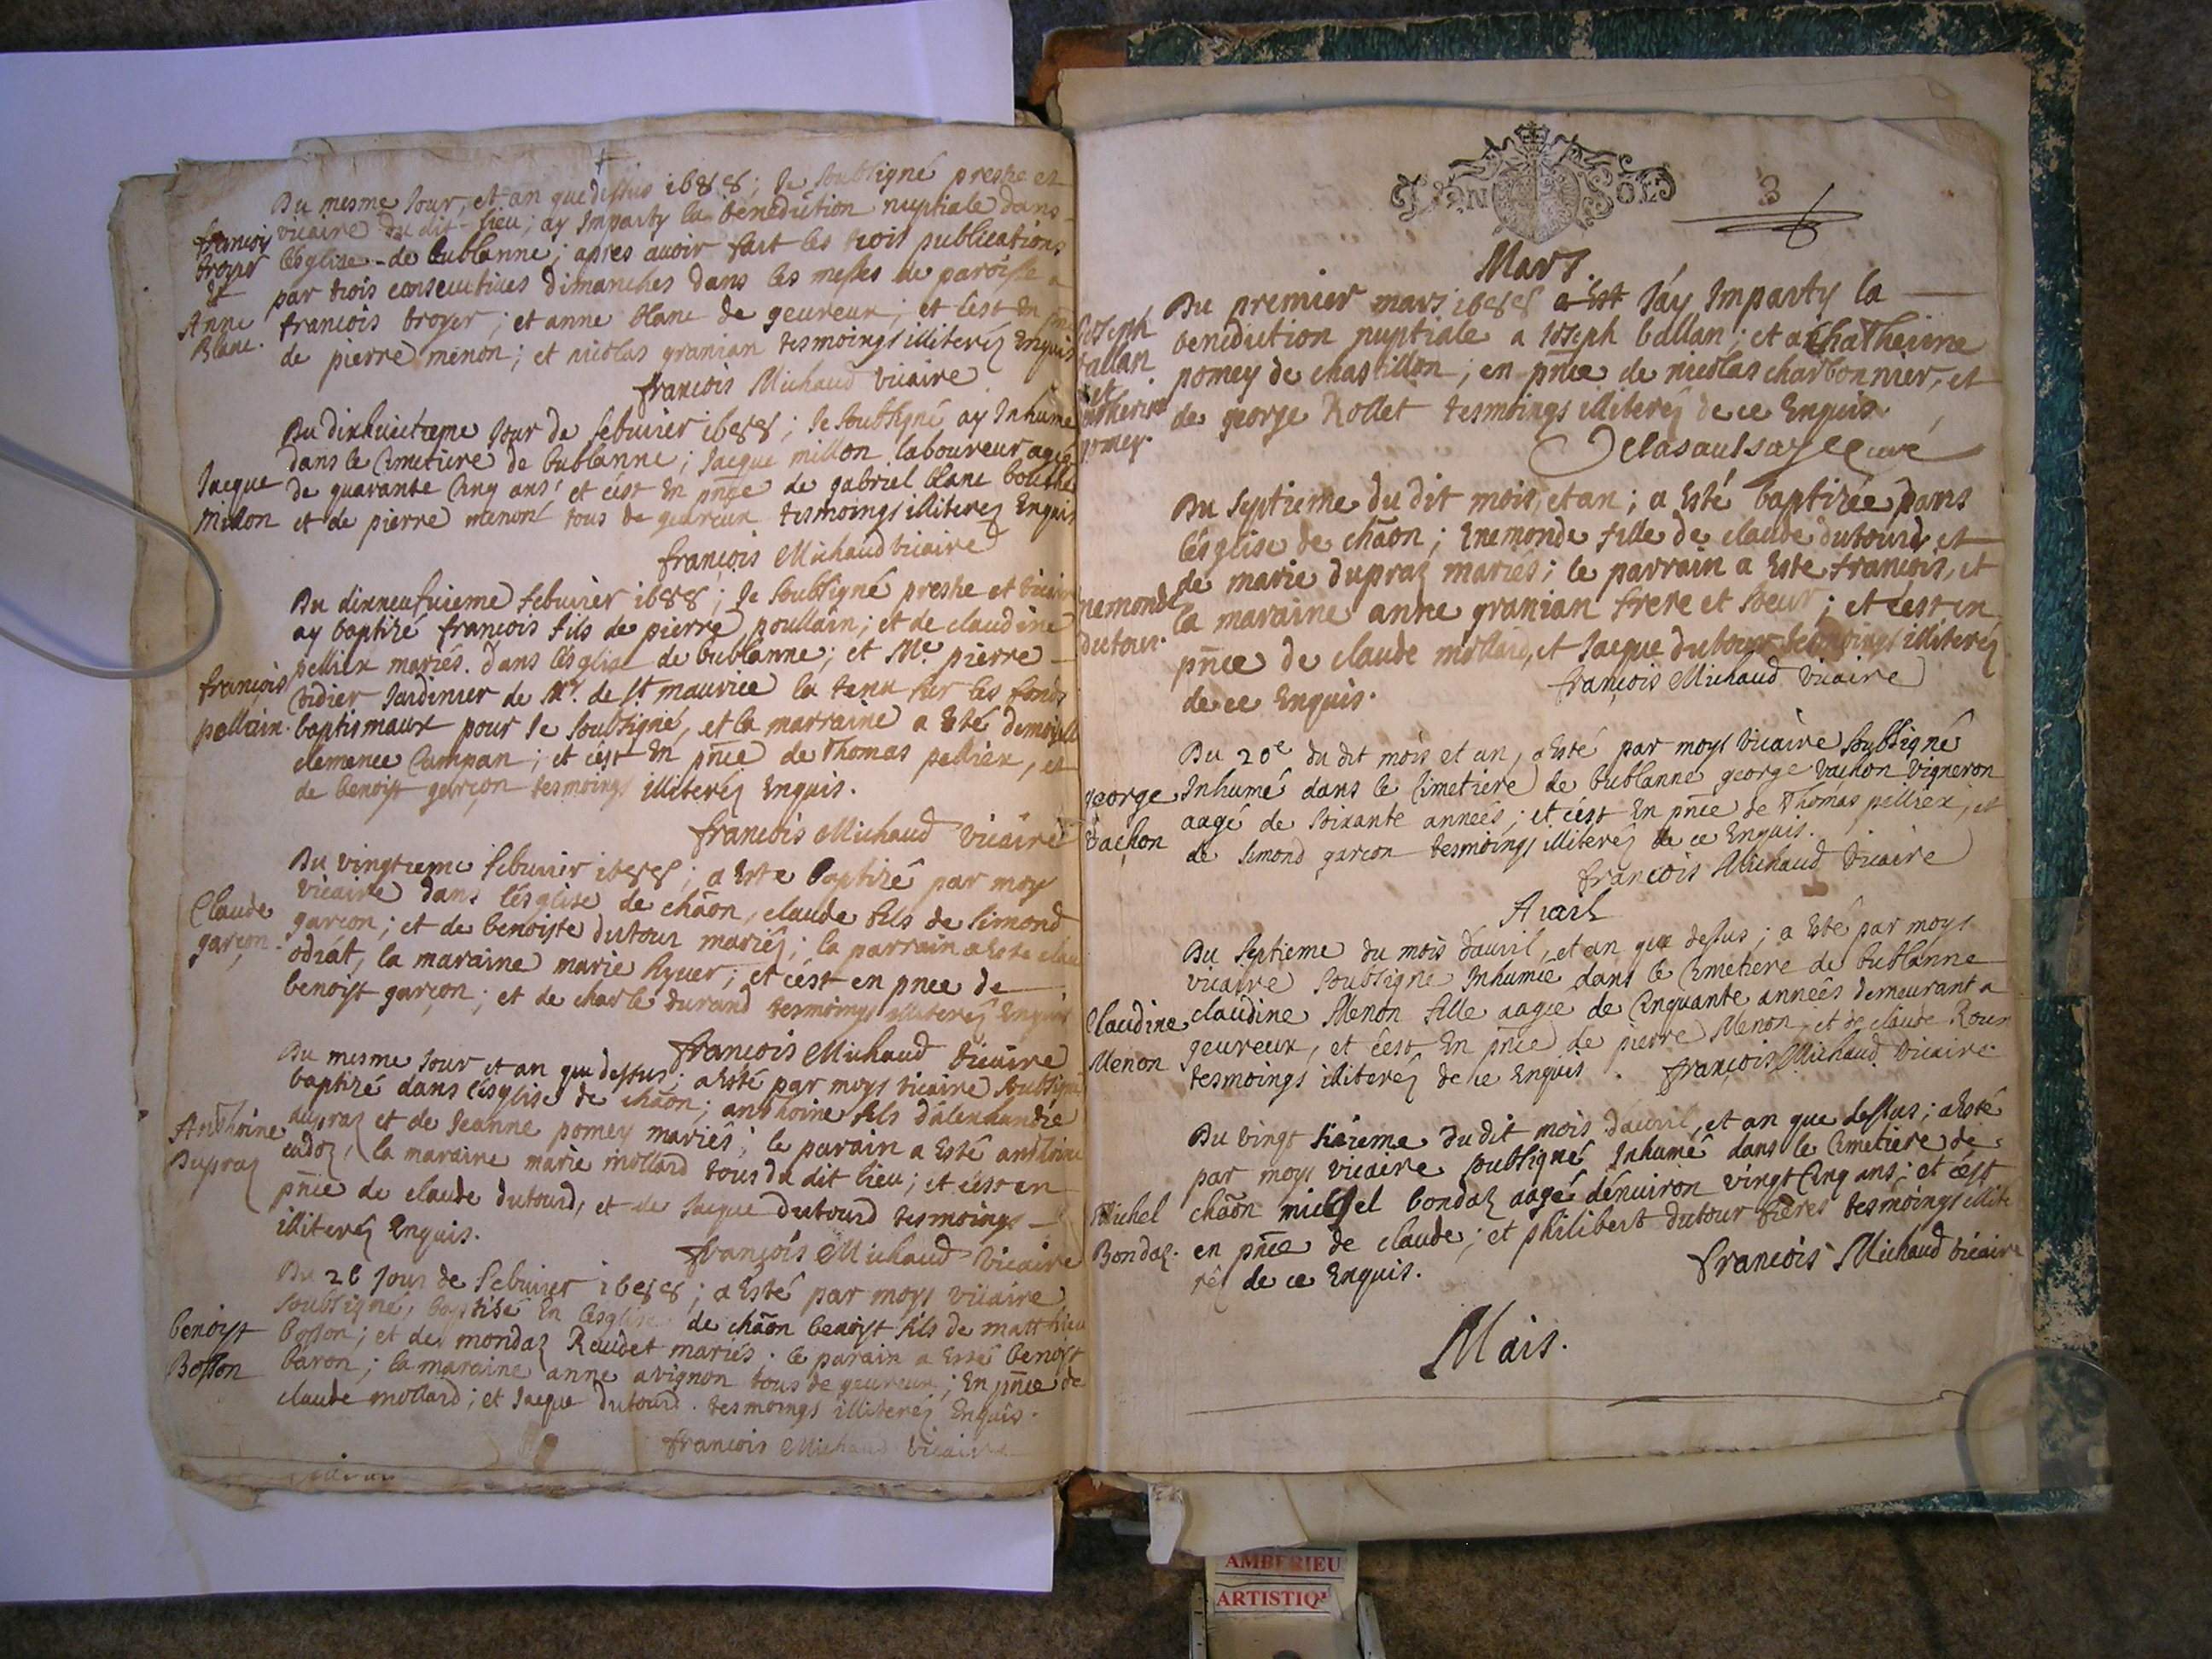 Du mesme Jour, et an que dessus 1688; Je soubsigné prestre et
vicaire du dit lieu; ay Imparty la benediction nuptiale dans
lésglise de bublanne; apres avoir fait les trois publications
par trois consecutives dimanches dans les messes de paroisse a
francois broyer; et anne blanc de gevreux; et cést en
de pierre menon; et nicolas granian tesmoings illiterez Enquis
francois broyer
et
Anne
Blanc.
françois Michaud vicaire
Du dixhuictieme Jour de febvrier 1688; Je soubsigné ay Inhumé
dans le Cimetiere de bublanne; Jacque millon laboureur agé
de quarante Cinq ans; et cést en pñce de gabriel blanc
et de pierre menon tous de gevreux tesmoings illiterez Enquis
Jacque
Millon
françois Michaud vicaire
Du dixneufvieme febvrier 1688; Je soubsigné prestre et vicaire
ay baptizé françois fils de pierre poullain; et de claudine
pellien mariés. dans lésglise de bublanne; et Mе pierre
didier Jardinier de Mr. de st maurice la tenu sur les fonds
baptismaux pour Je soubsigné, et la marraine a Esté demoiselle
clemence Campan; et cést en pñce de Thomas pellien, et
de benoist garçon tesmoings illiterez Enquis.
françois
pollain.
françois Michaud vicaire
Du vingtieme febvrier 1688; a Este baptizé par moy
vicaire dans lésglise de chãon, claude fils de simond
garcon; et de benoiste dutour mariéz; le parrain a Este
odrat, la maraine marie ; et cést en pnce de
benoist garçon; et de charle durand tesmoings illiterez Enquis
Claude
garçon.
françois Michaud vicaire
Du mesme Jour et an que dessus; a Esté par moys vicaire soubsigné
baptizé dans lésglise de chãon; anthoine fils dalexandre
dupraz et de Jeanne pomey mariés; le parain a Esté anthoine
cadoz, la maraine marie mollard tous du dit lieu; et cést en
pñce de claude dutourd, et de Jacque dutourd tesmoings
illiterez Enquis.
Anthoine
Dupraz
françois Michaud vicaire
Du Jour de febvrier 1688; a Esté par moys vicaire
soubsigné, baptisé En lésglise de chãon benoist fils de matthieu
bosson; et de mondaz Raudet mariés; le parain a Esté benoist
baron; la maraine anne avignon tous de gevreux; En pñce de
claude mollard; et Jacque dutourd. tesmoings illiterez Enquis.
benoist
Bosson
francois Michaud vicaire
3
Mars.
Du premier mars 1688 Jáy Imparty la
benediction nuptiale a Joseph ballan; et a Chatherine
pomey de chastillon; en pñce de nicolas charbonnier, et
de george Rollet tesmoings illiterez de ce Enquis.
Joseph
ballan
et
Catherine
pomey.
Delasaulsaye curé
Du septieme du dit mois, et an; a Esté baptizée dans
lésglise de chãon; Enemonde fille de claude dutourd, et
de marie dupraz mariés; le parrain a Este francois, et
la maraine anne granian frere et soeur; et cést en
pñce de claude mollard, et Jacque dutour tesmoings illiterez
de ce Enquis.
nemonde
dutour.
françois Michaud vicaire
Du 20e du dit mois et an, a Esté par moys vicaire soubsigné
Inhumé dans le Cimetiere de bublanne george vachon vigneron
aagé de soixante années; et cést En pñce de Thomas pellien, et
de simond garcon tesmoings illiterez de ce Enquis.
george
vachon
francois Michaud vicaire
Avril
Du septieme du mois dávril, et an que dessus; a Esté par moys
vicaire soubsigné Inhumée dans le Cimetiere de bublanne
claudine Menon fille aagée de Cinquante années demeurant a
gevreux, et cést En pñce de pierre Menon, et de claude Roux
tesmoings illiterez de ce Enquis.
Claudine
Menon
françois Michaud vicaire
Du vingt sixieme du dit mois dávril, et an que dessus; a Esté
par moys vicaire soubsigné Inhumé dans le Cimetiere de
chãon michel bondaz aagé dénviron vingt Cinq ans; et cést
en pñce de claude; et philibert dutour freres tesmoings illite
rez de ce Enquis.
Michel
Bondaz.
francois Michaud vicaire
Mais.
AMBERIEU
ARTISTIQ